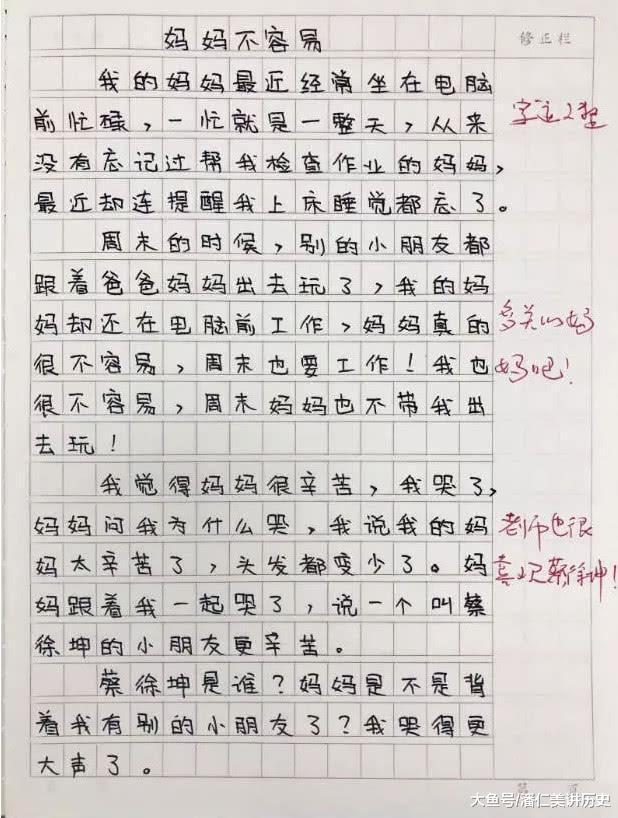 妈妈不容易
修正栏
我的妈妈最近经常坐在电脑
前忙碌，一忙就是一整天，从来
字迹工整
没有忘记过帮我检查作业的妈妈，
最近却连提醒我上床睡觉都忘了。
周末的时候，别的小朋友都
跟着爸爸妈妈出去玩了，我的妈
妈却还在电脑前工作，妈妈真的
多关心妈
很不容易，周末也要工作！我也
妈吧！
很不容易，周末妈妈也不带我出
去玩！
我觉得妈妈很辛苦，我哭了，
妈妈问我为什么哭，我说我的妈
老师也很
妈太辛苦了，头发都变少了。妈
喜欢蔡徐坤！
妈跟着我一起哭了，说一个叫蔡
徐坤的小朋友更辛苦。
蔡徐坤是谁？妈妈是不是背
着我有别的小朋友了？我哭得更
大声了。
大鱼号/潘仁美讲历史